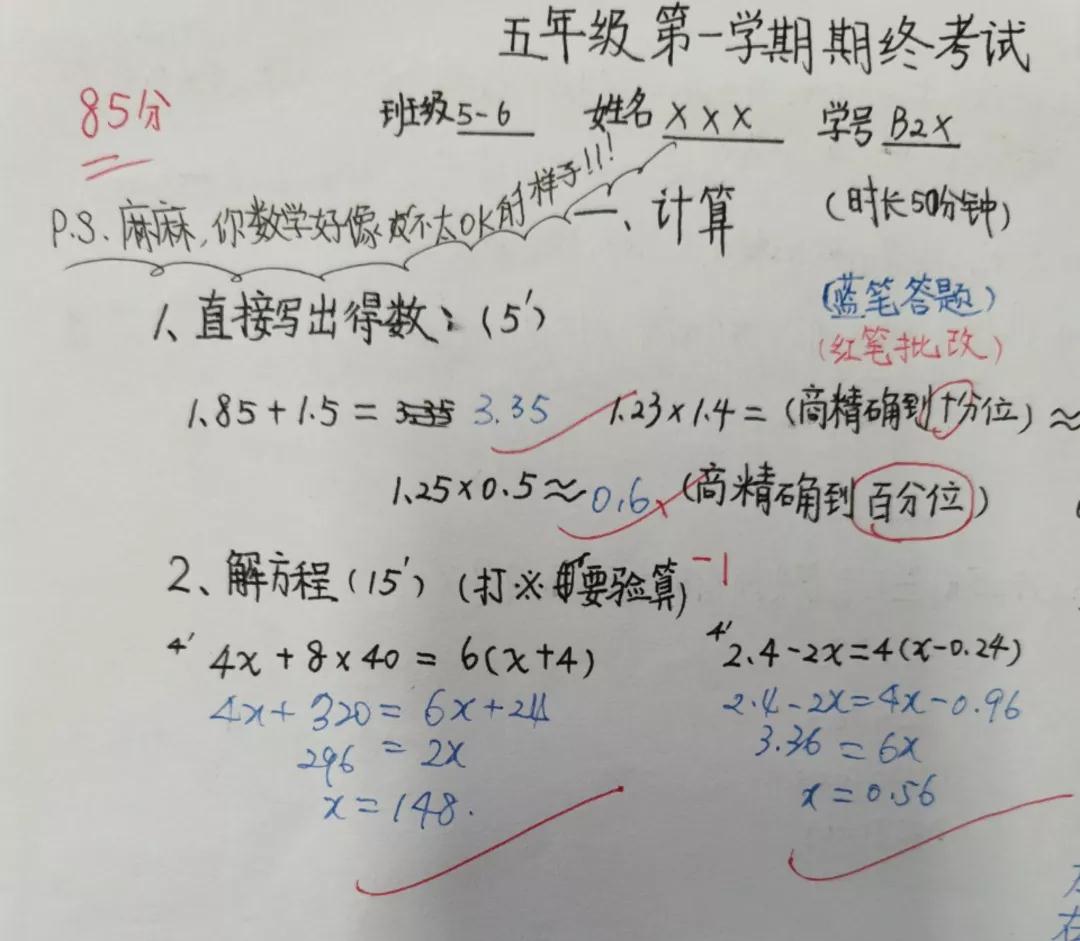 五年级第一学期期终考试
85分
班级5-6 姓名XXX 学号B2X
P.S.麻麻,你数学好像不太OK的样子!!!
一、计算 (时长50分钟)
(蓝笔答题)
1、直接写出得数:(5')
(红笔批改)
1.85+1.5= 3.35 1.23×1.4=(商精确到十分位)≈
1.25×0.5≈0.6 (商精确到百分位)
2、解方程(15')(打※要验算) -1
4' 4x+8×40=6(x+4) 4' 2.4-2x=4(x-0.24)
4x+320=6x+24 2.4-2x=4x-0.96
296=2x 3.36=6x
x=148. x=0.56
在